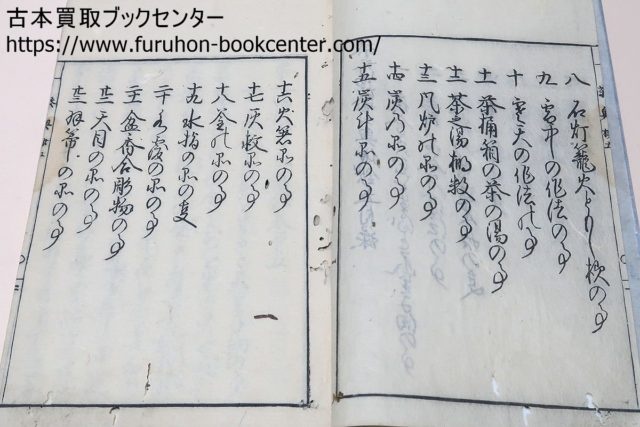 古本買取ブックセンター
https://www.furuhon-bookcenter.com/
八 石灯籠火とりし様の事
九 雪中の作法の事
十 雲天の作法の事
十一 茶桶箱の茶の湯の事
十二 茶之湯棚数の事
十三 風炉の品の事
十四 炭乃品の事
十五 炭斗品の事
十六 火箸品の事
十七 灰救品の事
十八 釜の品の事
十九 水指の品の事
二十
二十一 盆香合彫物の事
二十二 天目の品の事
二十三 羽帚の品の事